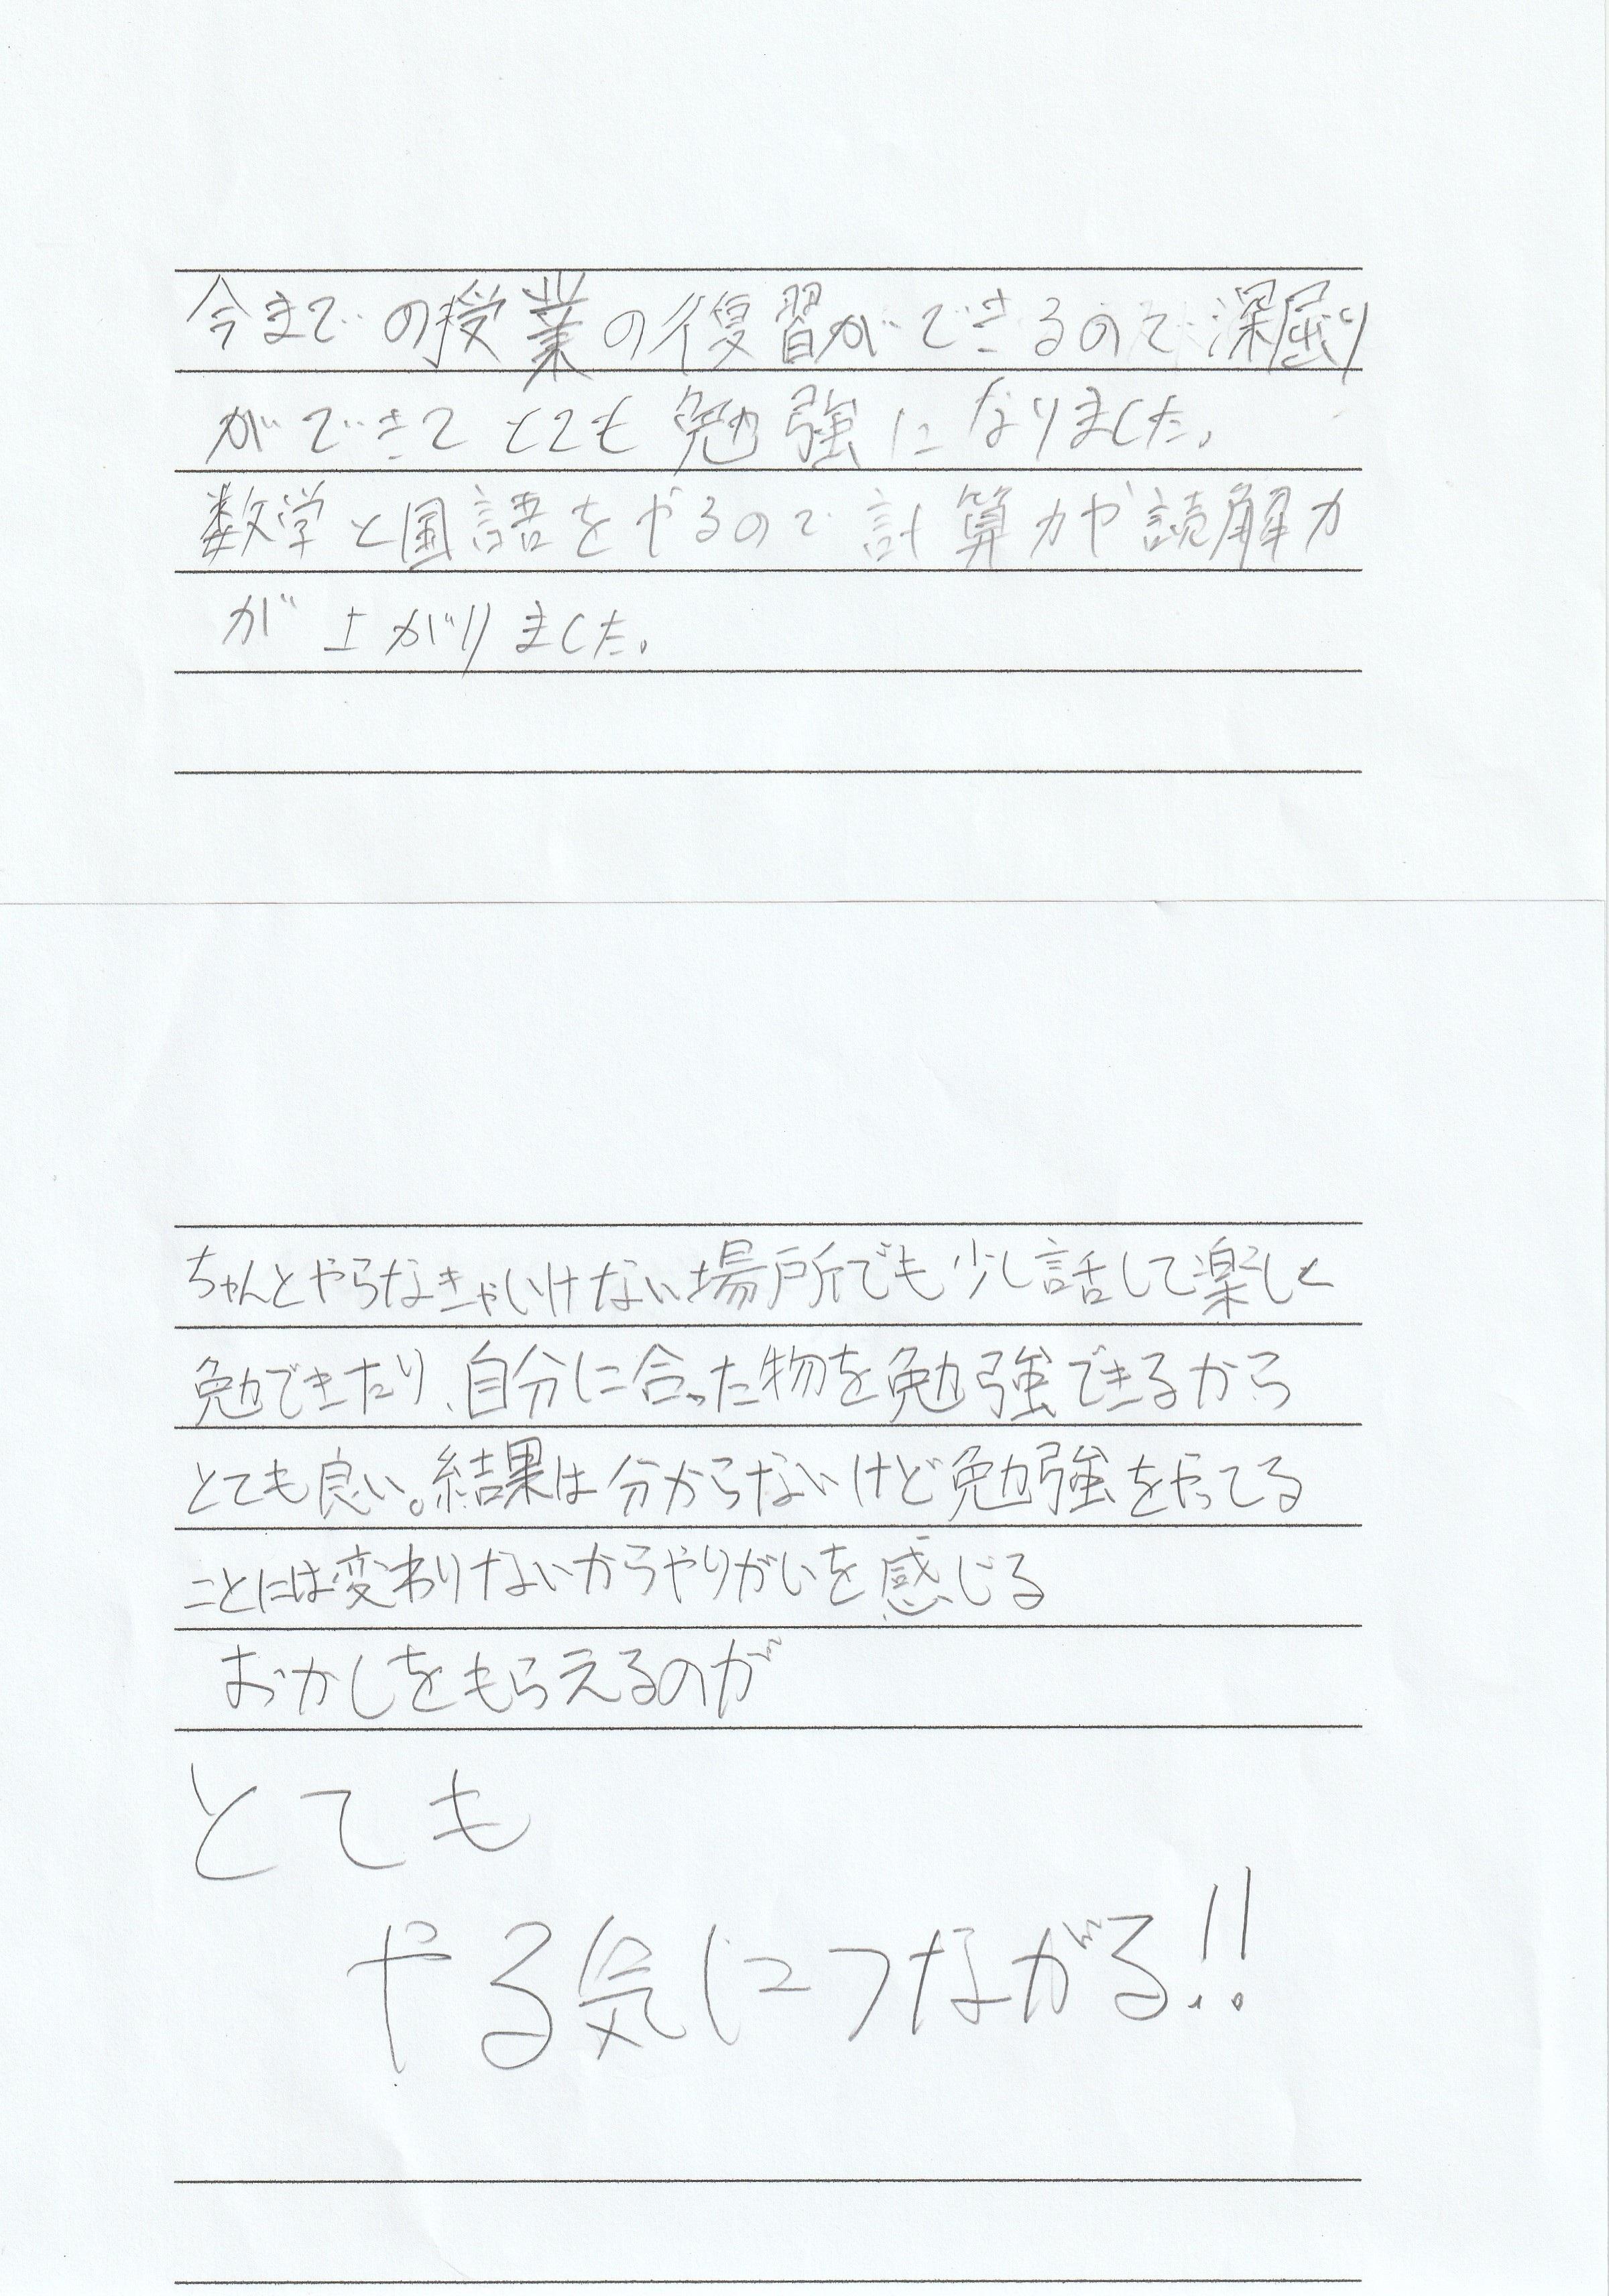 今までの授業の復習ができるので深屈り
ができてとても勉強になりました。
数学と国語をやるので計算力や読解力
が上がりました。
ちゃんとやらなきゃいけない場所でも少し話して楽しく
勉できたり、自分に合った物を勉強できるから
とても良い。結果は分からないけど勉強をやってる
ことには変わりないからやりがいを感じる
おかしをもらえるのが
とても
やる気につながる!!